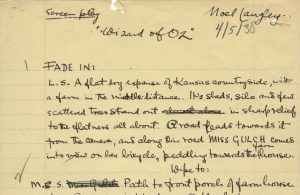 Screen play
Noel Langley
"Wizard of Oz"
4/5/38
1
FADE IN:
L.S. A flat dry expanse of Kansas countryside, with
a farm in the middle distance. Its sheds, silo and few
scattered trees stand out in sharp relief
to the flatness all about. A road leads towards it
from the camera, and along his road MISS GULCH
comes
into view on her bicycle, peddling towards the farm
house.
Wipe to:
M.S. Path to front porch of farmhouse.